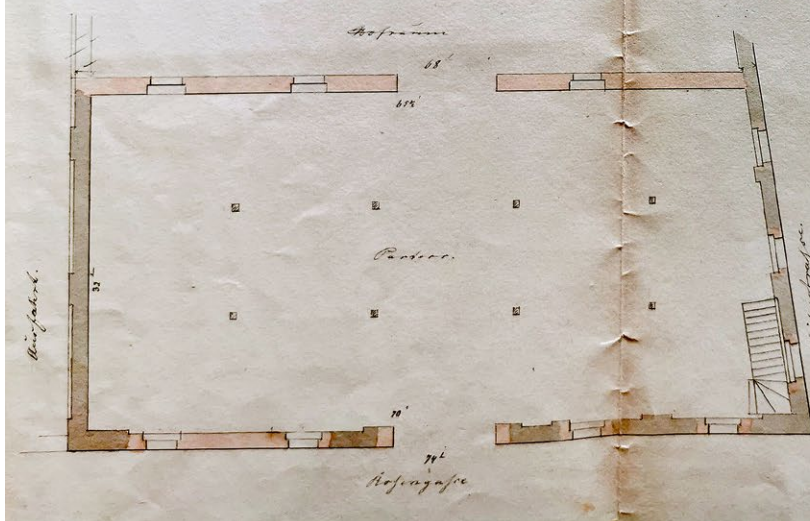 Hofraum
68'
Parterr.
Ausfahrt.
32'
70'
74'
Rosengasse